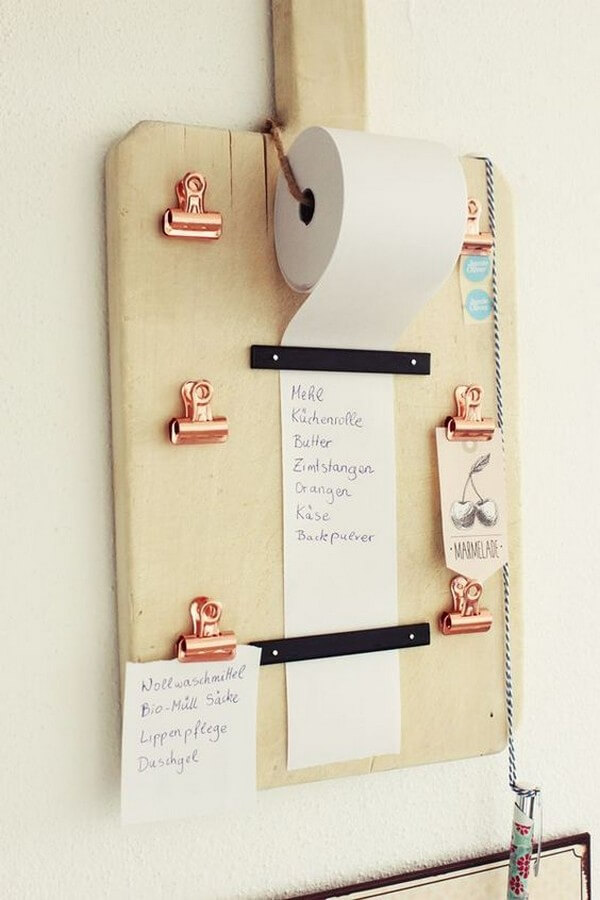 Mehl
Küchenrolle
Butter
Zimtstangen
Orangen
Käse
Backpulver
·MARMELADE·
Wollwaschmittel
Bio-Müll Säcke
Lippenpflege
Duschgel